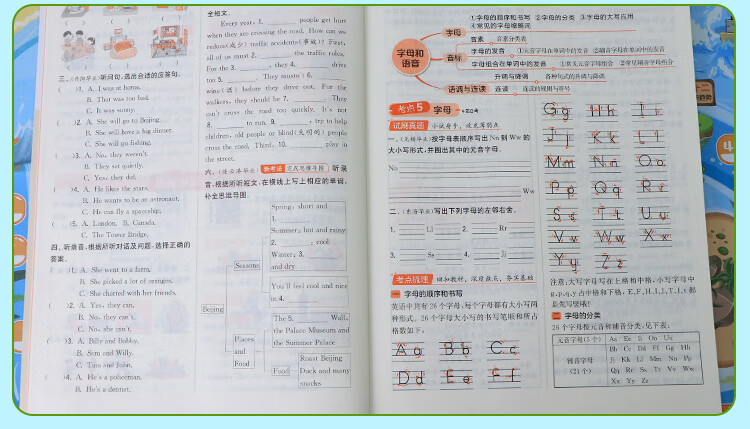 三、听问句,选出合适的应答句。
( )1. A. I was at home.
B. That was too bad.
C. It was sunny.
( )2. A. She will go to Beijing.
B. She will have a big dinner.
C. She will go fishing.
( )3. A. No, they weren't.
B. They set quietly.
C. Yes, they did.
( )4. A. He likes the stars.
B. He wants to be an astronaut.
C. He can fly a spaceship.
( )5. A. London. B. Canada.
C. The Tower Bridge.
四、听录音,根据所听对话及问题,选择正确的
答案。
( )1. A. She went to a farm.
B. She picked a lot of oranges.
C. She chatted with her friends.
( )2. A. Yes, they can.
B. No, they can't.
C. No, she can't.
( )3. A. Billy and Bobby.
B. Sam and Willy.
C. Tim and John.
( )4. A. He's a policeman.
B. He's a dentist.
全短文。
Every year, 1. people get hurt
when they are crossing the road. How can we
reduce(减少) traffic accidents(事故)? First,
all of us must 2. the traffic rules.
For the 3. , they 4. drive
too 5. . They mustn't 6.
wine(酒) before they drive out. For the
walkers, they should be 7. . They
can't cross the road too quickly. It's not
8. to run. 9. , try to help
children, old people or blind(失明的) people
cross the road. Third, 10. play in
the street.
六、 新考法 听录
音,根据所听短文,在横线上写上相应的单词,
补全思维导图。
Beijing
Seasons
Spring: short and
1.
Summer: hot and rainy
2. : cool
Winter: 3.
and dry
You'll feel cool and nice
in 4.
Places
and
Food
The 5. Wall,
the Palace Museum and
the Summer Palace
Food
Roast Beijing
Duck and many
snacks
字母和
语音
字母
①字母的顺序和书写 ②字母的分类 ③字母的大写应用
④常见的字母缩略词
音素 音素分类表
音标
字母的发音 ①元音字母在单词中的发音 ②辅音字母在单词中的发音
字母组合在单词中的发音 ①常见元音字母组合 ②常见辅音字母组合
语调与连读
升调与降调 各种句式的升调与降调
连读 连读的规则与符号
考点5 字母
试刷真题 小试身手,攻克薄弱点
按字母表顺序写出 Nn 到 Ww 的
大小写形式,并圈出其中的元音字母。
Nn
Ww
写出下列字母的左邻右舍。
1. Ll 2. Rr
3. Ss 4. Jj
考点梳理
一 字母的顺序和书写
英语中共有26个字母,每个字母都有大小写两
种形式。26个字母大小写的书写笔顺和所占
格数如下:
Aa Bb Cc
Dd Ee Ff
Gg Hh Ii
Jj Kk Ll
Mm Nn Oo
Pp Qq Rr
Ss Tt Uu
Vv Ww Xx
Yy Zz
注意:大写字母写在上格和中格,小写字母中
二 字母的分类
26个字母按元音和辅音分类,见下表:
元音字母(5个) Aa Ee Ii Oo Uu
辅音字母
(21个)
Bb Cc Dd Ff Gg Hh
Jj Kk Ll Mm Nn Pp
Qq Rr Ss Tt Vv Ww
Xx Yy Zz